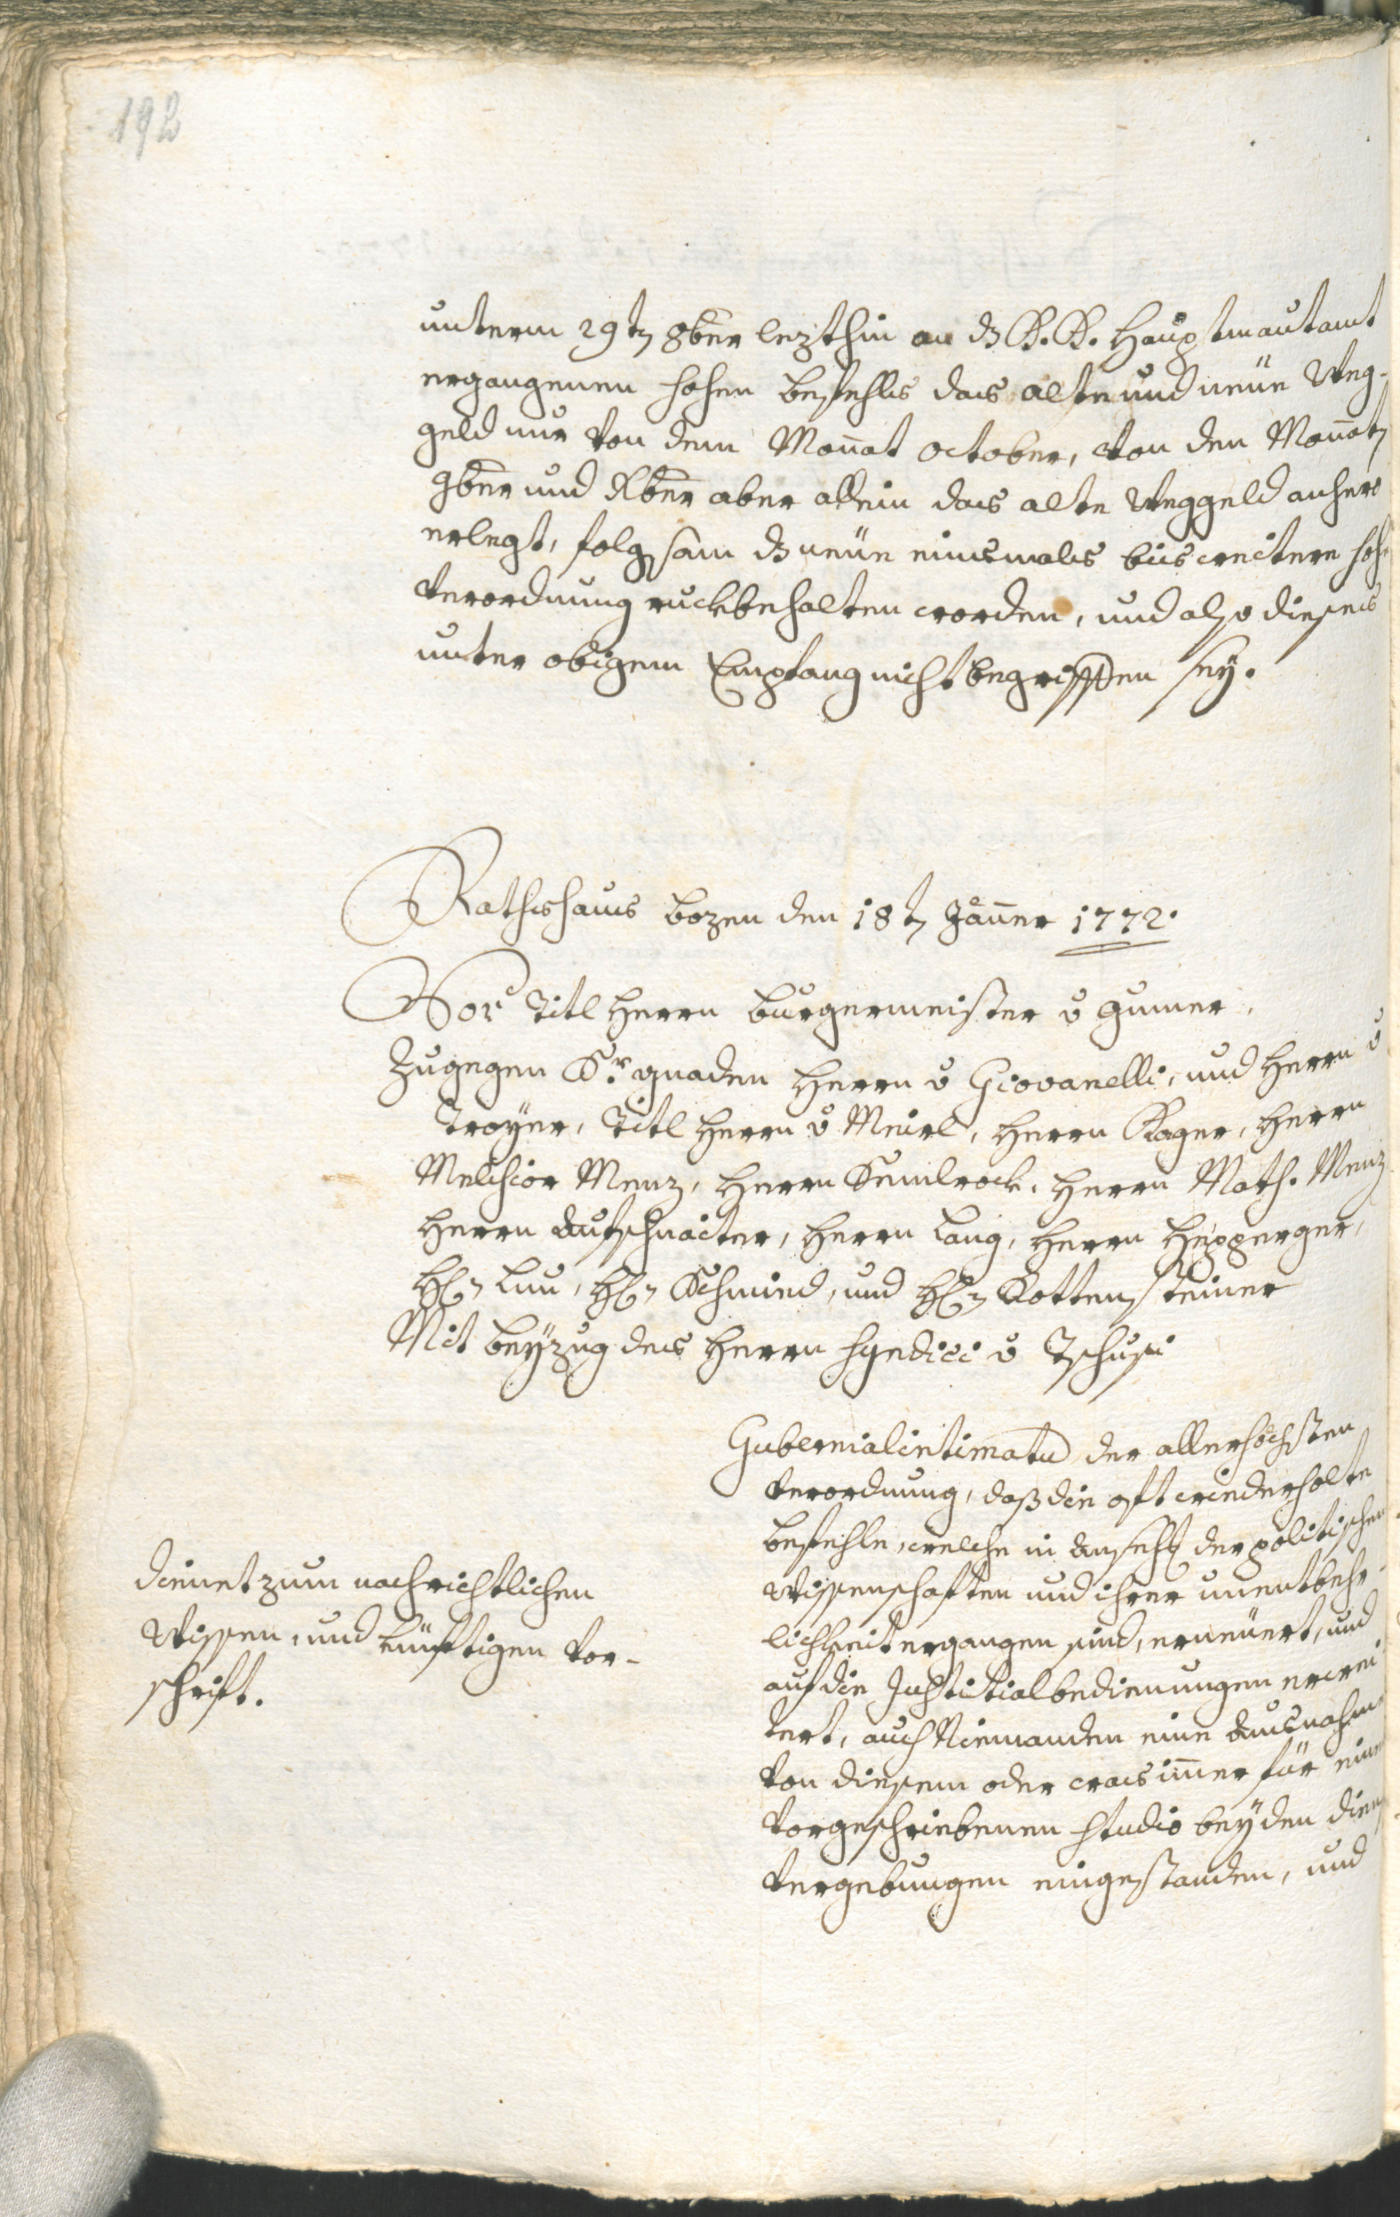 192
unterm 29t 8ber lezthin an dz K. K. Hauptmautamt
ergangenen hohen Befehls das alte und neüe Weg-
geld nur von dem Monnat October, von den Monnat
9ber und Xber aber allein das alte Weggeld anhero
erlegt, folgsam dz neüe einsmals bis weitere hohe
Verordnung ruckbehalten worden, und also dieses
unter obigem Empfang nicht begriffen sey.
Rathshaus Bozen den 18t Jänner 1772.
Vor Titl Herrn Burgermeister v Gumer,
Zugegen Sr. Gnaden Herrn v Giovanelli, und Herrn v
Troyer, Titl Herrn v Meirl, Herrn Kager, Herrn
Melchior Menz, Herrn Semlrock, Herrn Math. Menz
Herrn Aufschnaiter, Herrn Lang, Herrn Hepperger,
H. Luu, H. Schmid, und H. Rottensteiner
Mit Beyzug des Herrn Syndici v Tschusi
Gubernialintimatu der allerhöchsten
Verordnung, daß die oft wiederholte
Befehle, welche in Ansehung der politischen
Wissenschaften und ihrer unentbehr-
lichkeit ergangen sind, erneüert, und
auf die Justitialbedienungen erwei-
tert, auch Niemanden eine Ausnahm
von diesem oder was immer für einem
vorgeschriebenen Studio bey den Dienst
Vergebungen eingestanden, und
dienet zum nachrichtlichen
Wissen, und künftigen Vor-
schrift.